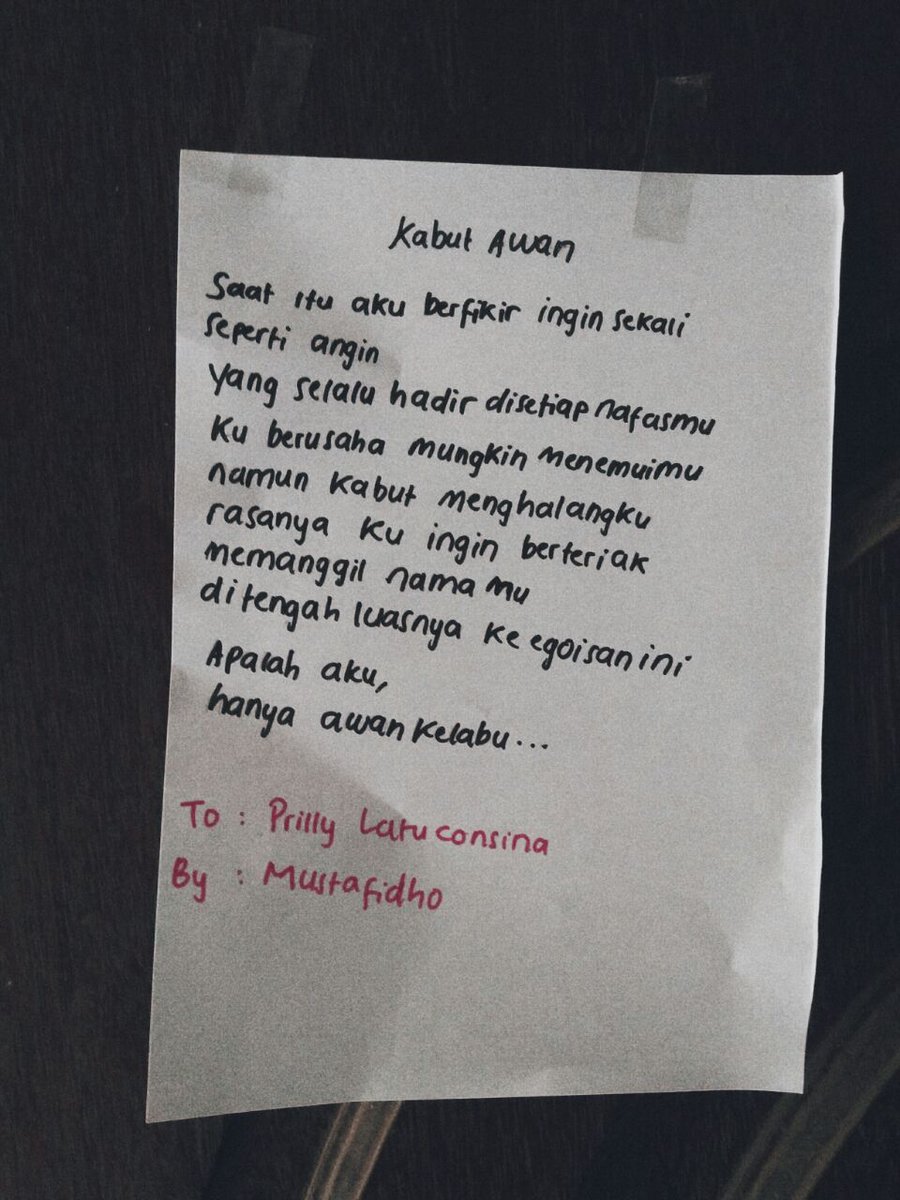 Kabut Awan
Saat itu aku berfikir ingin sekali
seperti angin
Yang selalu hadir disetiap nafasmu
Ku berusaha mungkin menemuimu
namun kabut menghalangku
rasanya ku ingin berteriak
memanggil nama mu
ditengah luasnya ke egoisan ini
Apalah aku,
hanya awan kelabu...
To : Prilly Latuconsina
By : Mustafidho